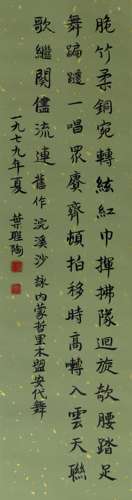 脆竹柔銅宛轉絃紅巾揮拂隊迴旋欹腰踏足
舞蹁蹮一唱眾賡齊頓拍移時高囀入雲天聯
歌繼闋儘流連舊作浣溪沙詠內蒙哲里木盟安代舞
一九七九年夏
葉聖陶